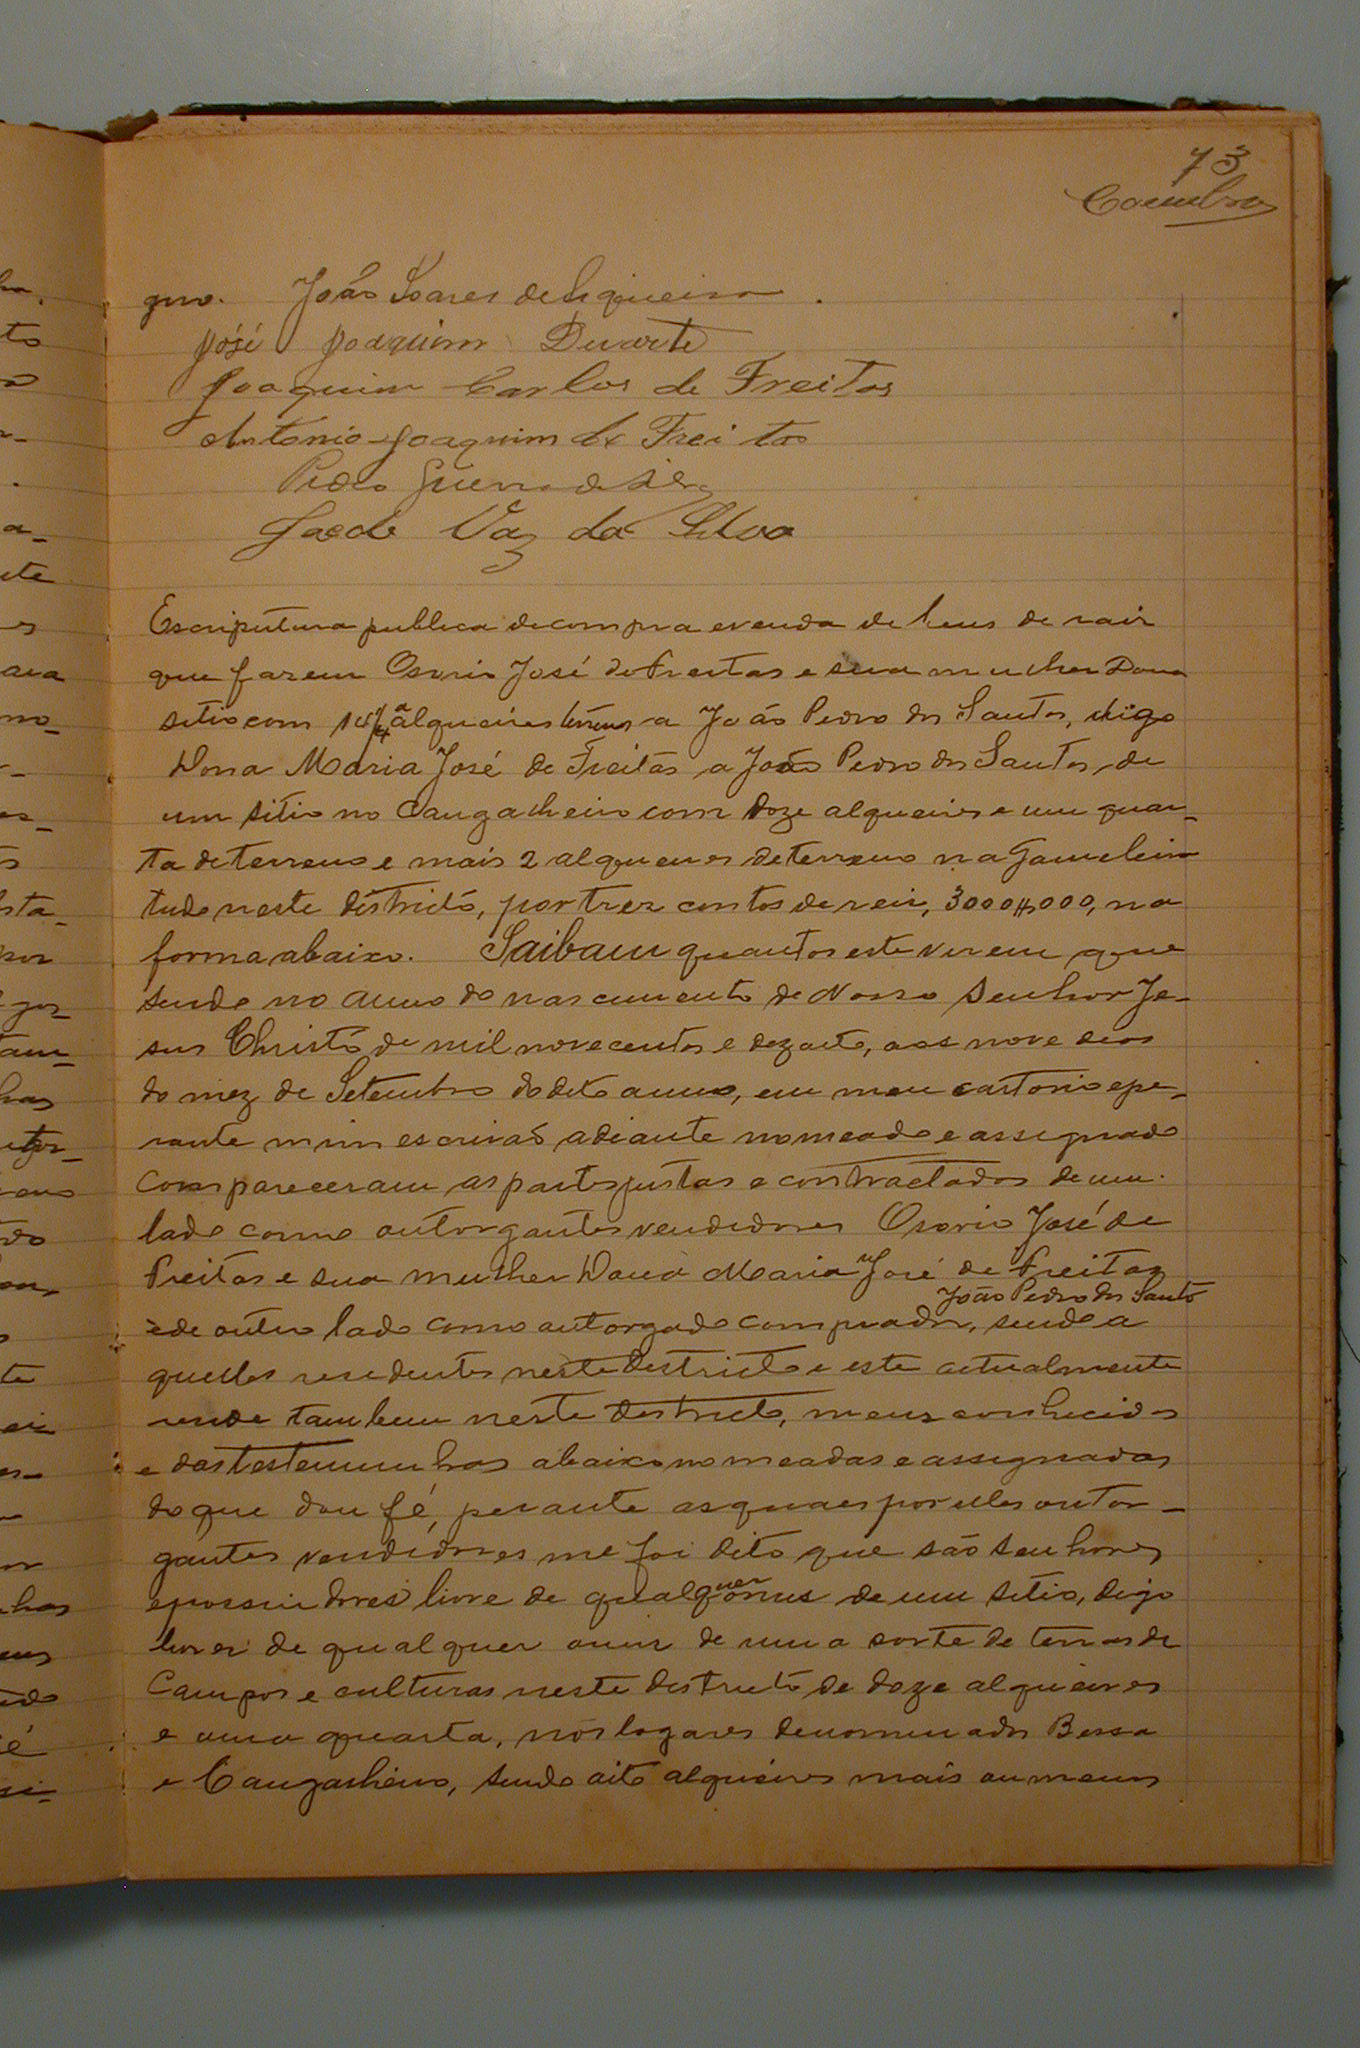 73
Coimbra
guo. João Soares de Siqueira.
José Joaquim Duarte
Joaquim Carlos de Freitas
Antonio Joaquim de Freitas
Pedro Guerra da Silva
Jacob Vaz da Silva
Escriptura publica de compra e venda de bens de raiz
que fazem Osorio José de Freitas e sua mulher Dona
sitio com 14 1/4 alqueires terreno a João Pedro dos Santos, digo
Dona Maria José de Freitas a João Pedro dos Santos, de
um sitio no Cangacheiro com doze alqueires e um quar-
ta de terreno e mais 2 alqueires de terreno na Gameleira
tudo neste districto, por trez contos de reis, 3000$000, na
forma abaixo. Saibam quantos este virem que
sendo no anno do nascimento de Nosso Senhor Je-
sus Christo de mil novecentos e dezoito, aos nove dias
do mez de Setembro do dito anno, em meu cartorio e pe-
rante mim escrivão adiante nomeado e assignado
compareceram as partes justas e contractados de um
lado como outorgantes vendedores Osorio José de
Freitas e sua mulher Dona Maria José de Freitas
João Pedro dos Santos
e de outro lado como outorgado comprador, sendo a
quelles residentes neste districto e este actualmente
reside tambem neste districto, meus conhecidos
e das testemunhas abaixo nomeadas e assignadas
do que dou fé, perante as quaes por elles outor-
gantes vendedores me foi dito que são senhores
e possuidores livre de qualquer onus de um sitio, digo
livres de qualquer onus de uma sorte de terras de
Campos e culturas neste districto de doze alqueires
e uma quarta, nos logares denominados Bossa
e Cangacheiro, sendo oito alqueires mais ou menos